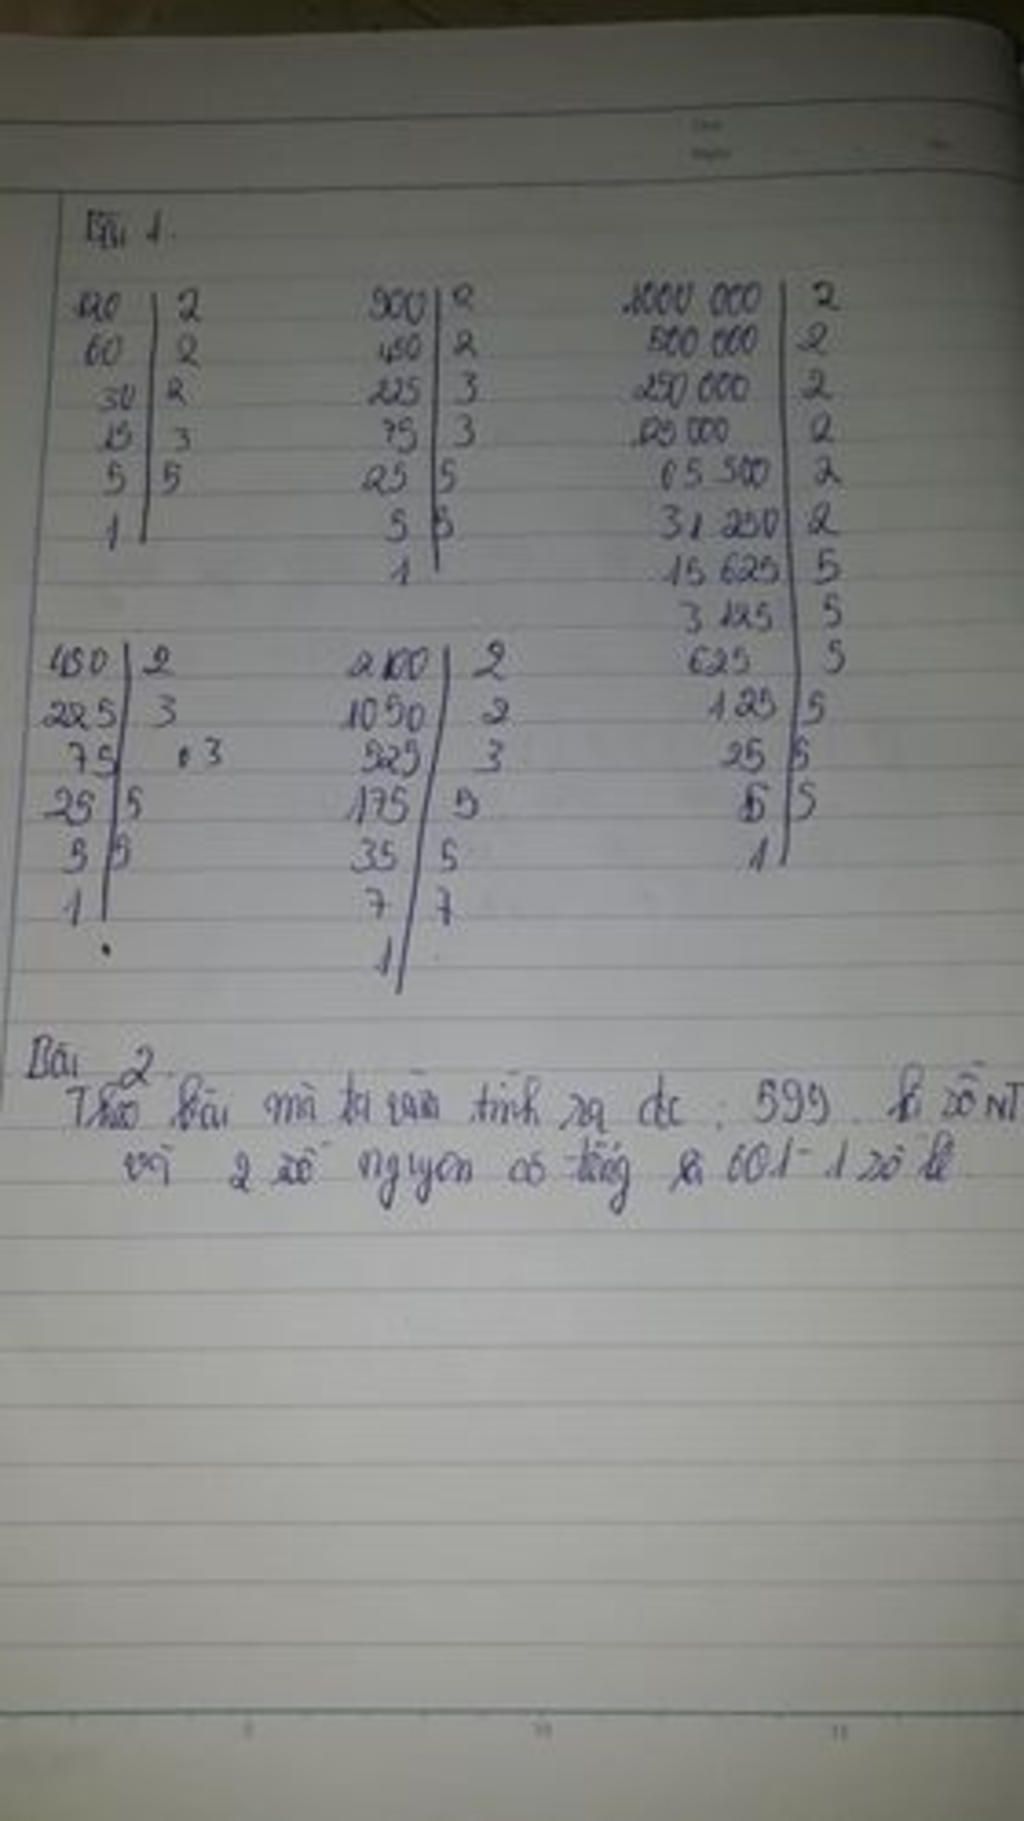 Bài 1.
120 | 2
60 | 2
30 | 2
15 | 3
5 | 5
1
900 | 2
450 | 2
225 | 3
75 | 3
25 | 5
5 | 5
1
1000 000 | 2
500 000 | 2
250 000 | 2
125 000 | 2
65 500 | 2
31 250 | 2
15 625 | 5
3 125 | 5
625 | 5
125 | 5
25 | 5
5 | 5
1
450 | 2
225 | 3
75 | 3
25 | 5
5 | 5
1
2100 | 2
1050 | 2
525 | 3
175 | 5
35 | 5
7 | 7
1
Bài 2.
Theo bài mà ta tính ra đc : 599 là số NT
và 2 số nguyen có tổng là 601 - 1 số lẻ
9 10 11